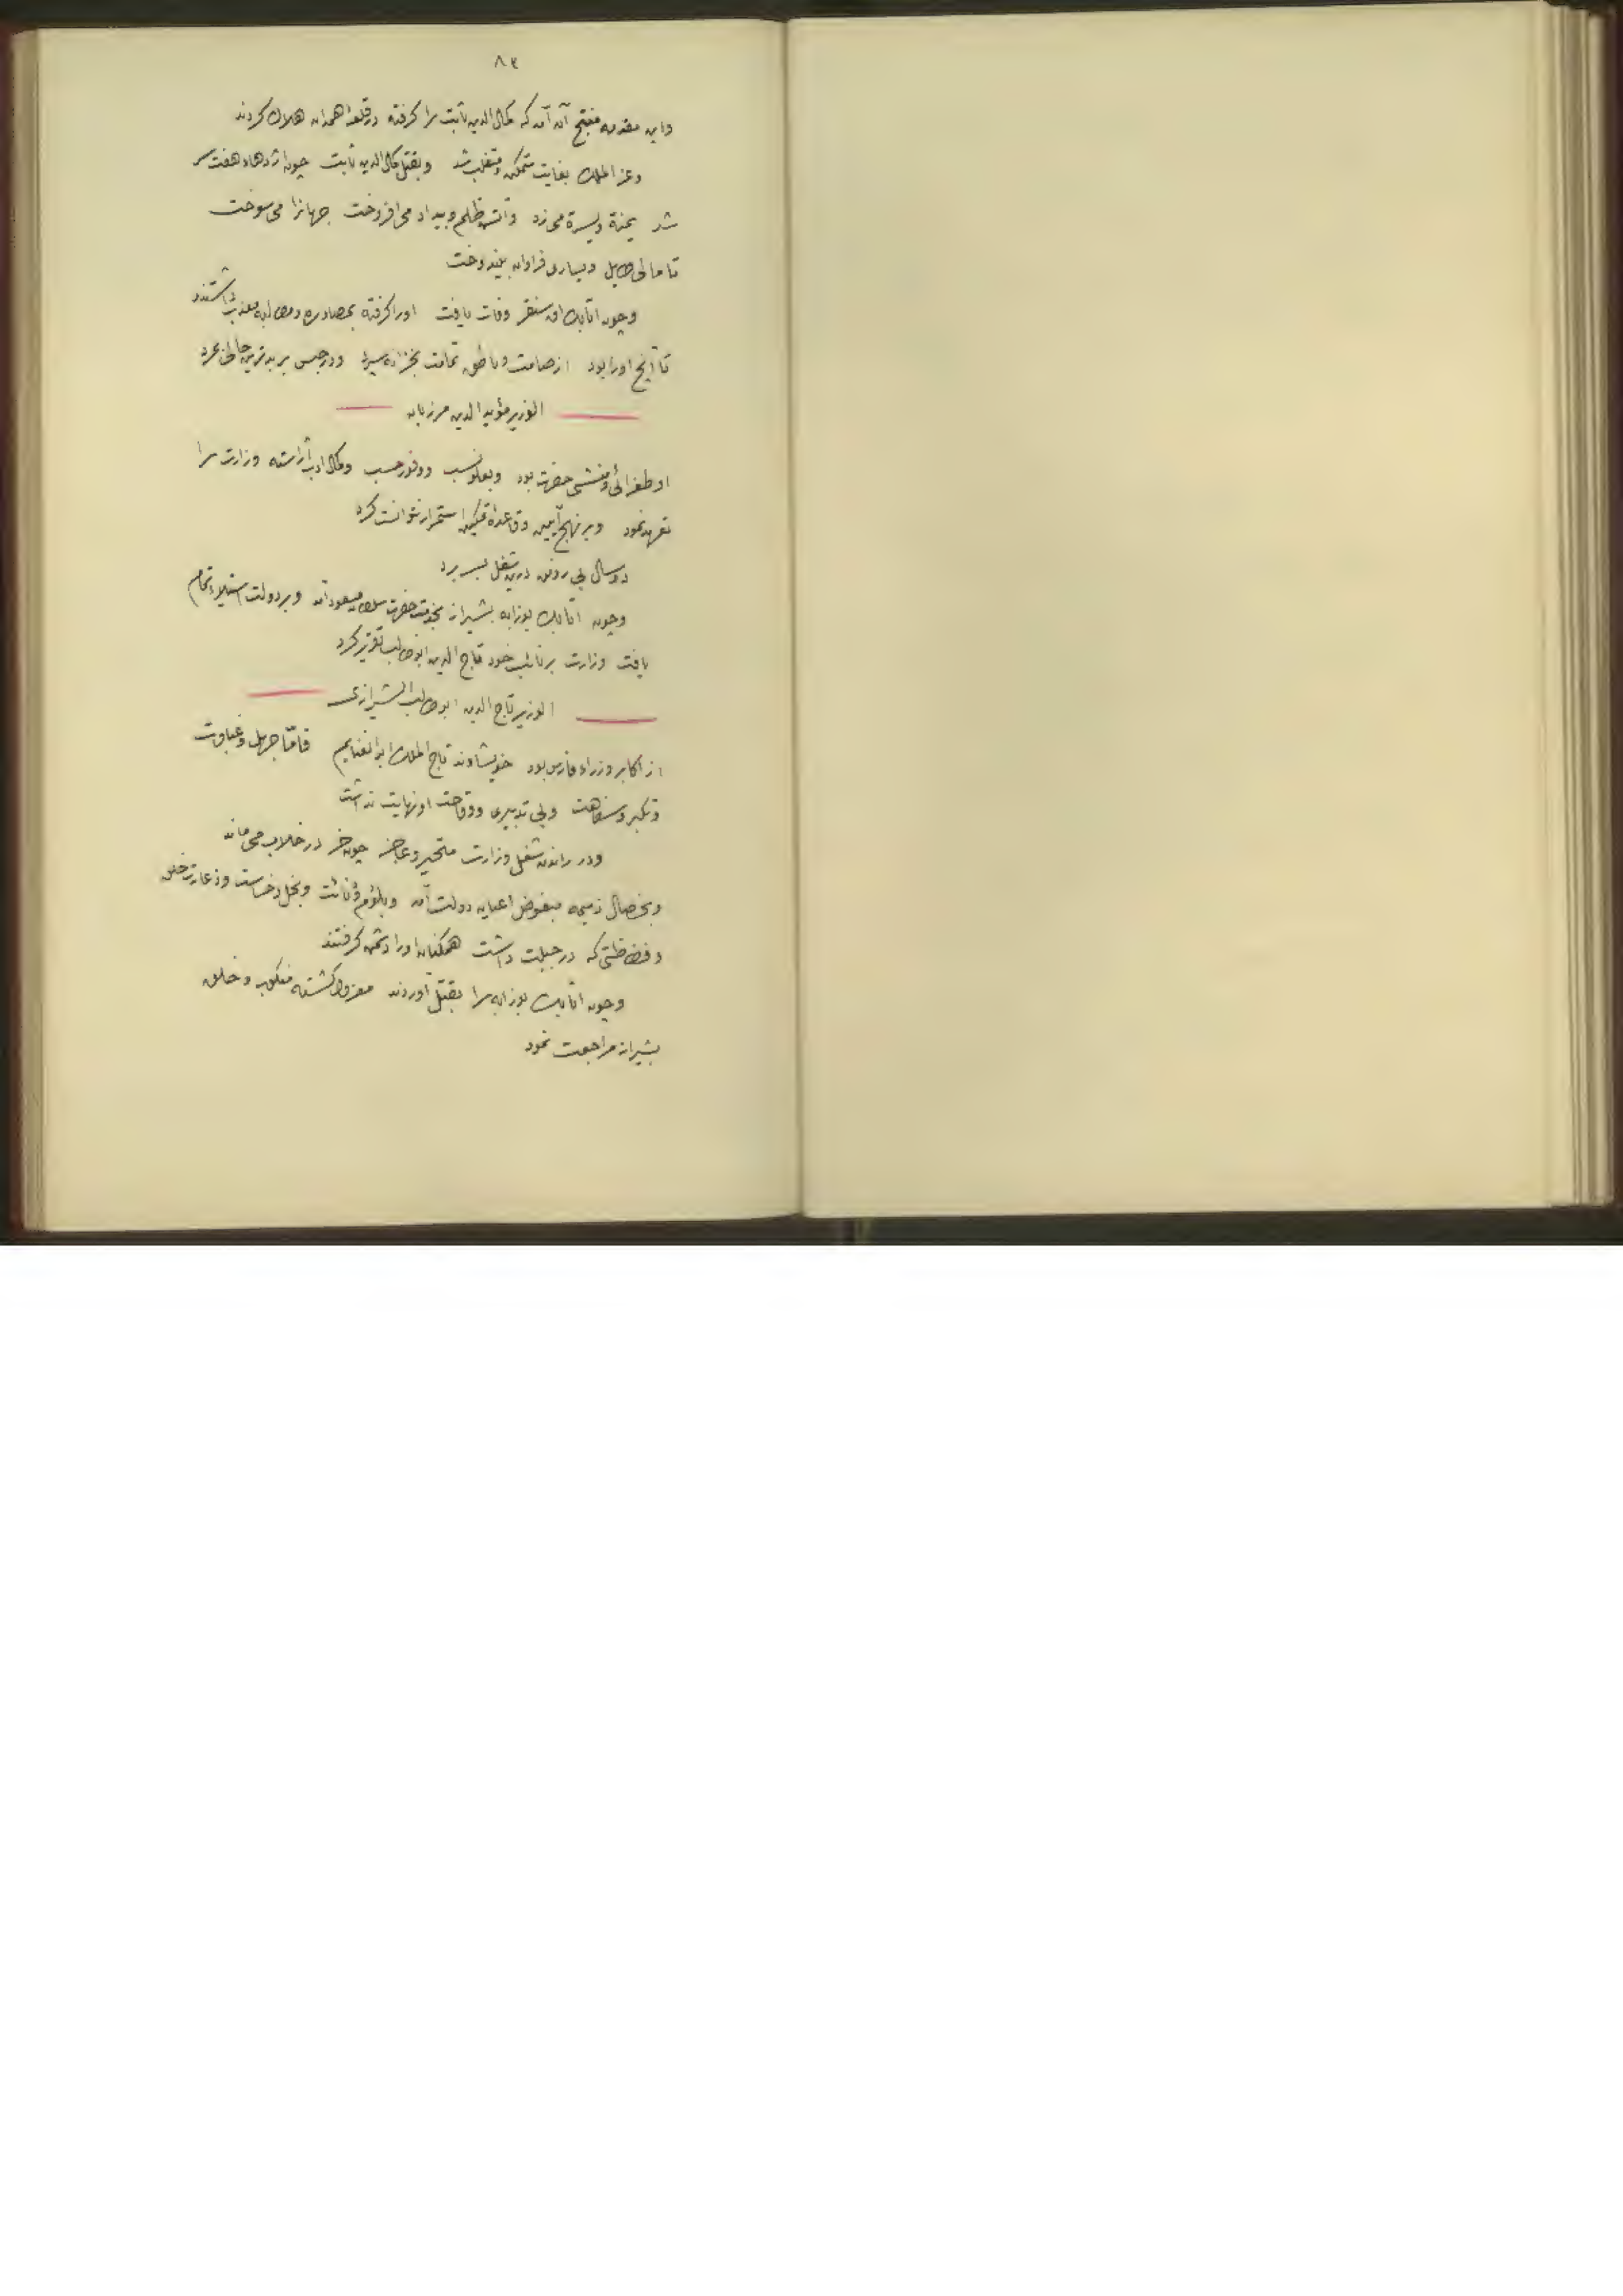 ٨٤
واین مقدمه مفتح آن آمد که کمال الدین ثابت را کرفته در قلعهٔ همدان هلاك کردند
وعز الملك بغایت متمکن ومتغلب شد وبقتل کمال الدین ثابت چون اژدهاء هفت سر
شد یمنة ویسرة می زد وآتش ظلم وبیداد می افروخت جهانرا می سوخت
تا مالی طایل ویساری فراوان بیندوخت
وچون اتابك اق سنقر وفات یافت اورا کرفته بمصادره ومطالبه معذب داشتند
تا آنچ اورا بود از صامت وناطق تمامت بخزانه سپرد ودر حبس بر بدترین حالی بمرد
الوزیر مؤید الدین مرزبان
او طغرائی ومنشی حضرت بود وبعلو نسب ووفور حسب وکمال ادب آراسته وزارت را
تعهد نمود وبر نهج آیین وقاعدهٔ تمکین استمرار نتوانست کرد
دو سال بی رونق درین شغل بسر برد
وچون اتابك بوزابه بشیراز بخدمت حضرت سلطان مسعود آمد وبر دولت استیلاء تمام
یافت وزارت بر نائب خود تاج الدین ابو طالب تقریر کرد
الوزیر تاج الدین ابو طالب الشیرازی
از اکابر وزراء فارس بود خویشاوند تاج الملك ابو الغنایم فامّا جهل وغباوت
وتکبر وسفاهت وبی تدبیری ووقاحت او نهایت نداشت
ودر راندن شغل وزارت متحیر وعاجز چون خر در خلاب می ماند
وبخصال ذمیمه مبغوض اعیان دولت آمد وبلؤم ودنائت وبخل وخساست وذعارت خلق
وفظاظتی که در جبلت داشت همکنان اورا دشمن کرفتند
وچون اتابك بوزابه را بقتل آوردند معزول کشته منکوب وخلق
بشیراز مراجعت نمود